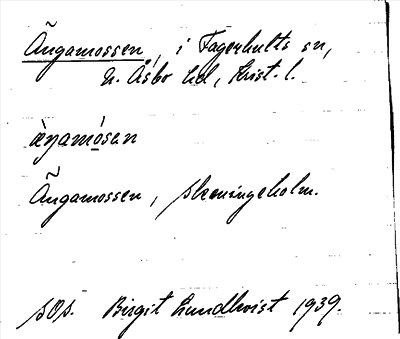 Ängamossen, i Fagerhults sn,
N. Åsbo hd, Krist. l.
æŋamósen
Ängamossen, Skeningeholm.
SOS. Birgit Lundkvist 1939.